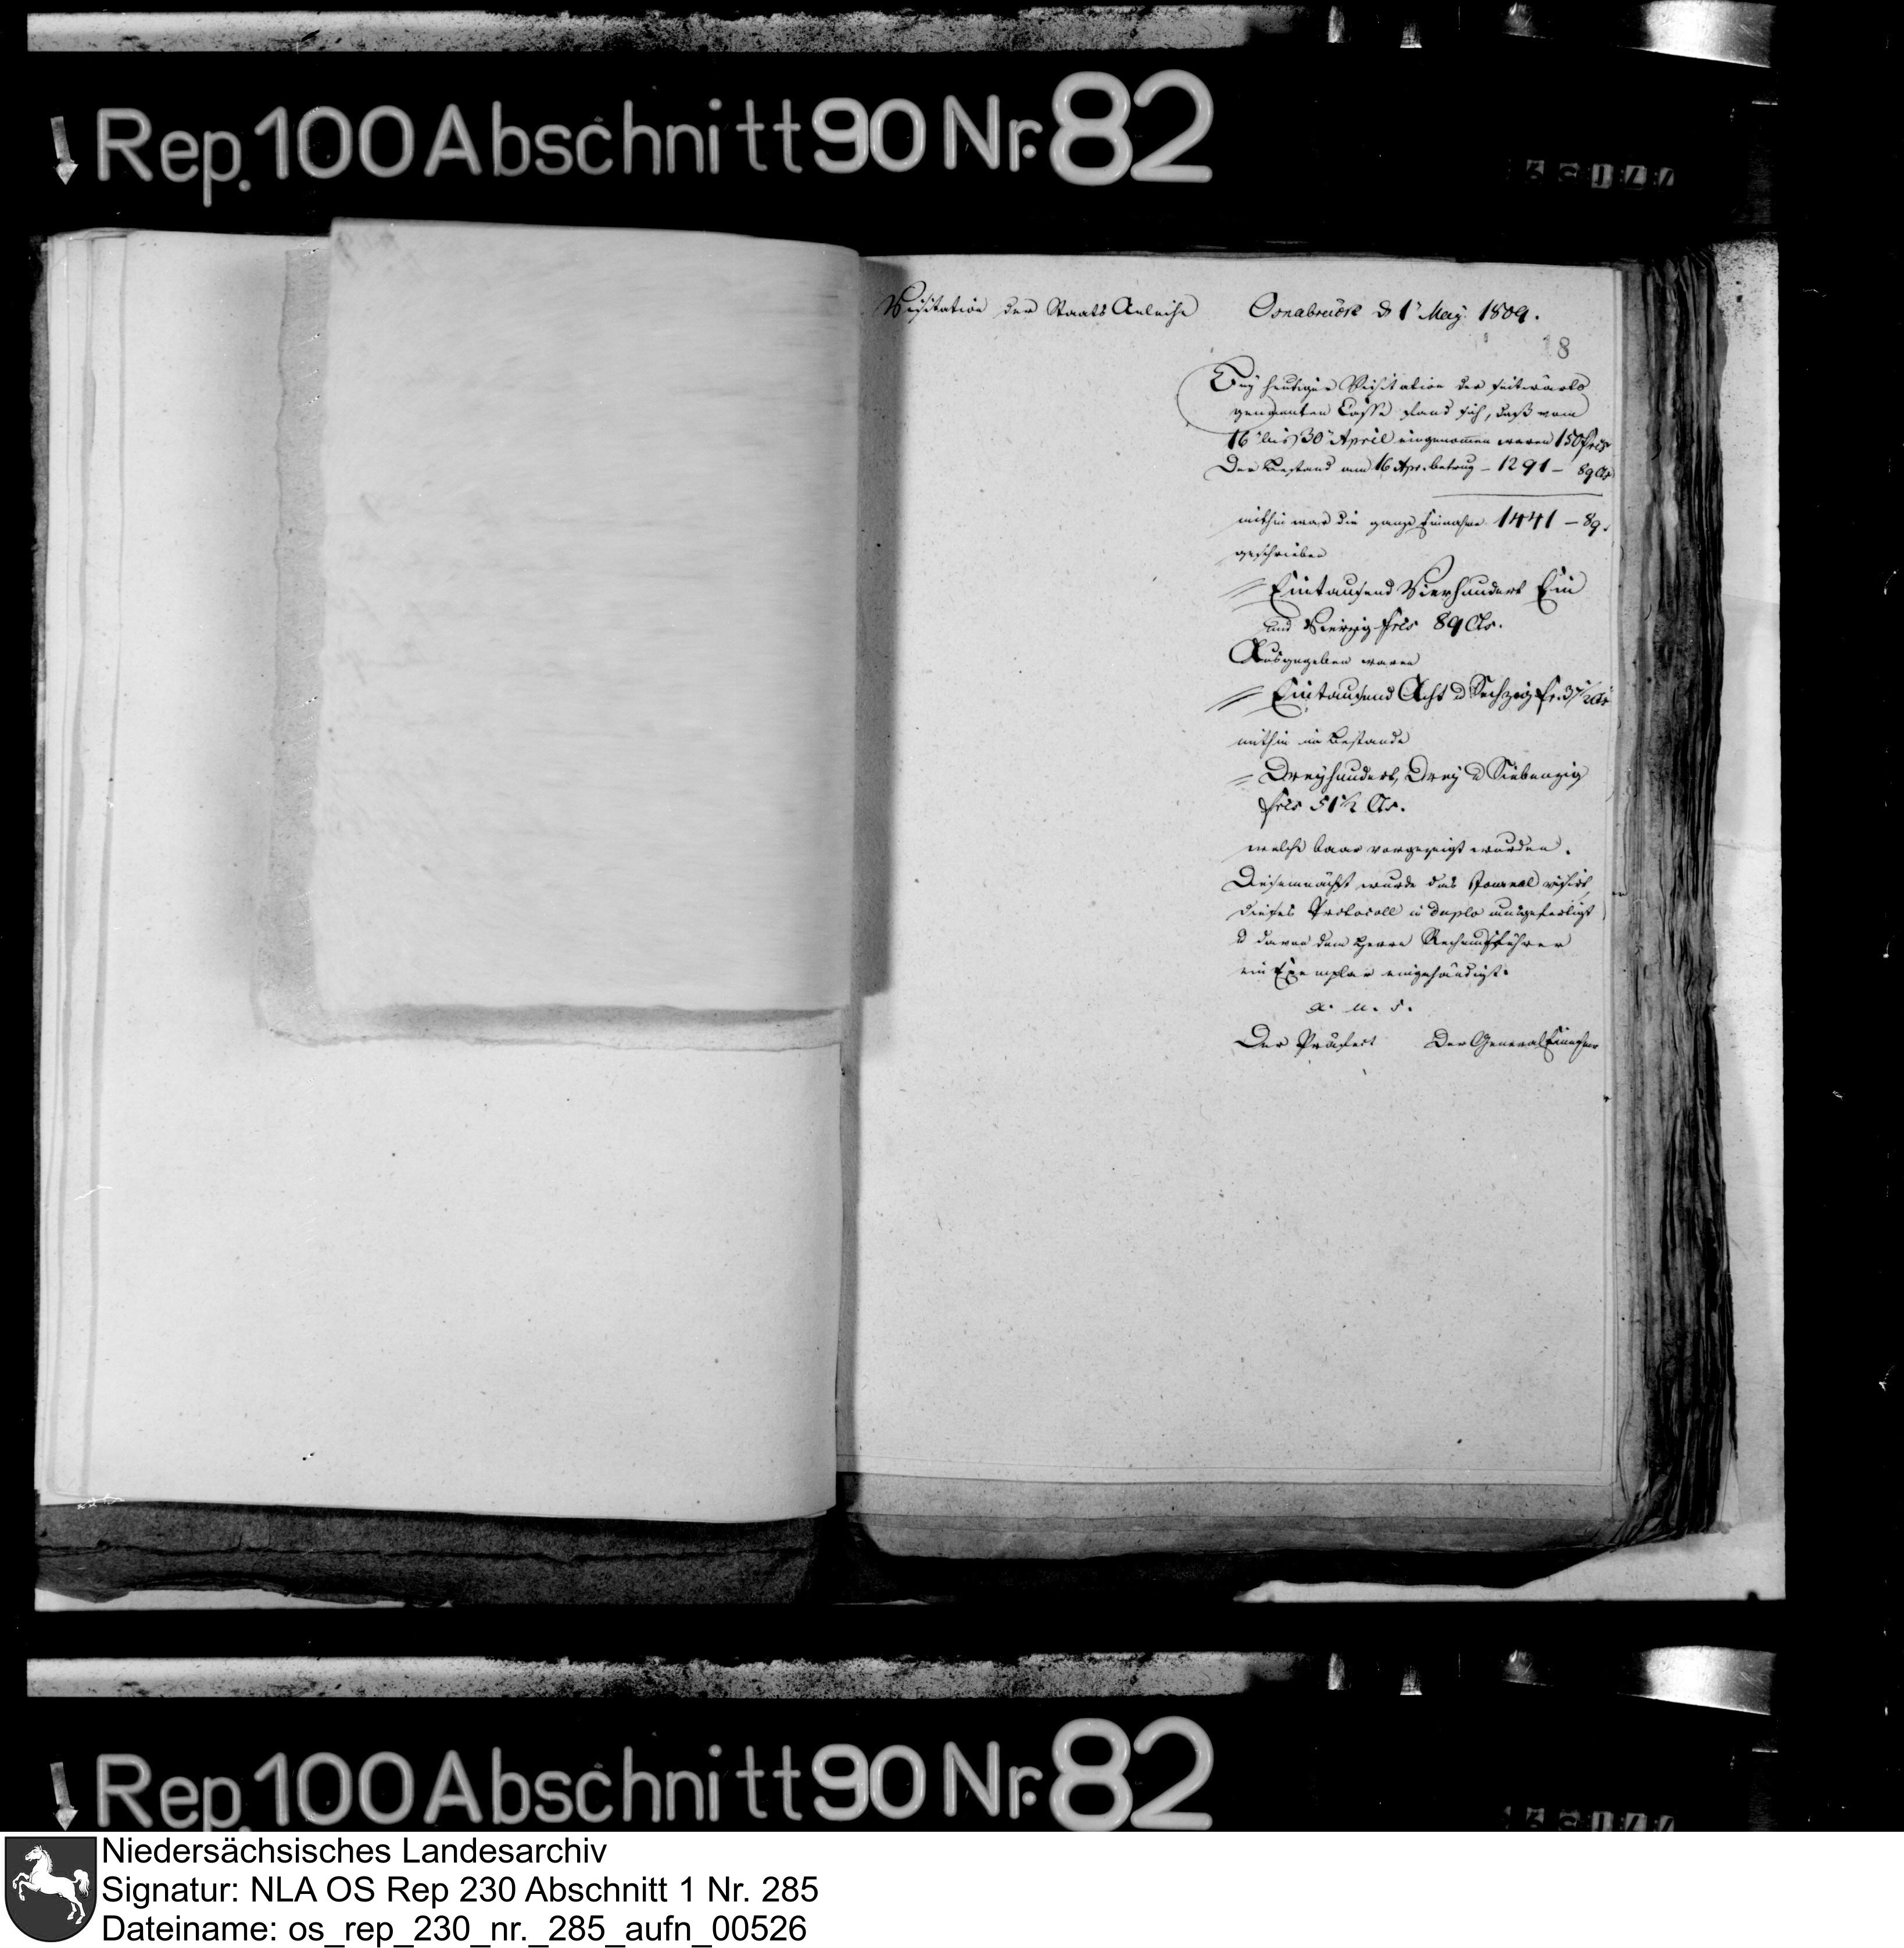 Rep. 100 Abschnitt 90 Nr. 82
Visitation der Staats Anleihe
Osnabrück d 1t May 1809.
18
Bey heutiger Visitation der seitwärts
genannten Casse fand sich, daß vom
16t bis 30t April eingenommen waren 150 frcs
Der Bestand am 16 Apr. betrug – 1291 – 89 Cs
mithin war die ganze Einnahme 1441 – 89.
geschrieben
Eintausend Vierhundert Ein
und Vierzig frcs 89 Cs.
Ausgegeben waren
Eintausend Acht u Sechzig fr. 37 1/2 Cs
mithin in Bestande
Dreyhundert, Drey u Siebenzig
frcs 51 1/2 Cs.
welche baar vorgezeigt wurden.
Diesemnächst wurde das Journal visirt,
dieses Protocoll in duplo ausgefertigt
u davon dem Herrn Rechnungsführer
ein Exemplar eingehändigt.
a. u. s.
Der Präfect Der General Einnehmer
Rep. 100 Abschnitt 90 Nr. 82
Niedersächsisches Landesarchiv
Signatur: NLA OS Rep 230 Abschnitt 1 Nr. 285
Dateiname: os_rep_230_nr._285_aufn_00526